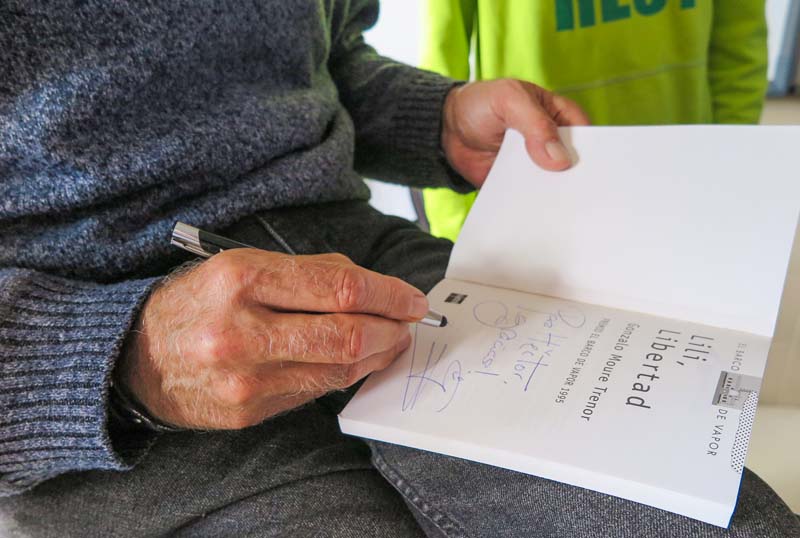 EL BARCO DE VAPOR
Lili,
Libertad
Gonzalo Moure Trenor
PREMIO EL BARCO DE VAPOR 1995
Para Hector,
¡gracias!